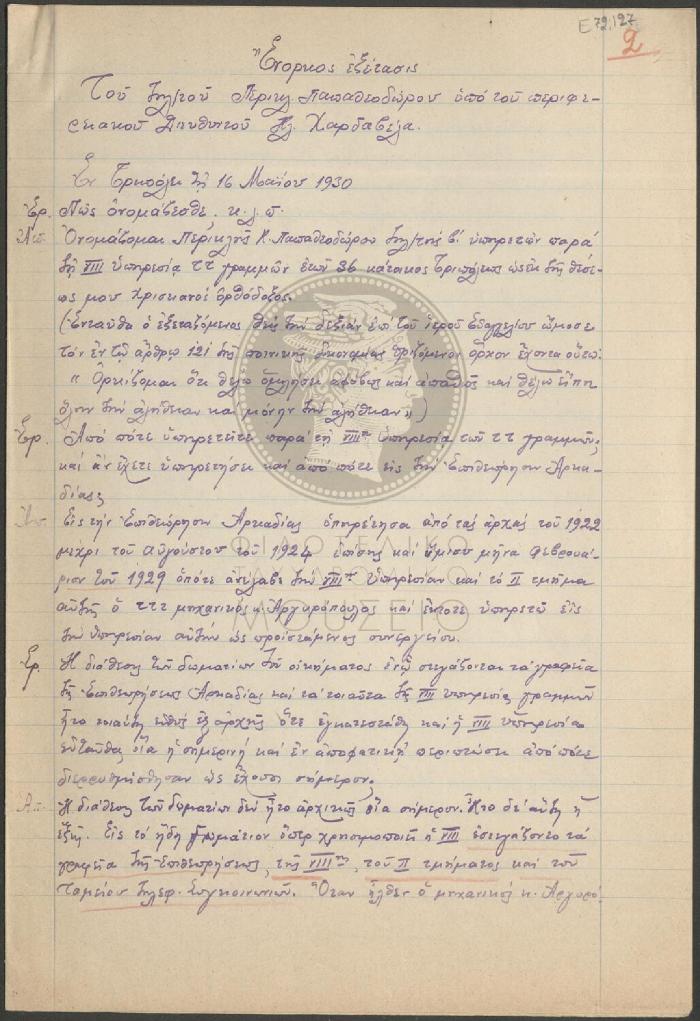 E 72.127
2
Ἔνορκος ἐξέτασις
Τοῦ τηλ/τοῦ Περικλ. Παπαθεοδώρου ὑπό τοῦ περιφε-
ρειακοῦ Διευθυντοῦ Πλ. Χαρδαβέλα.
Ἐν Τριπόλει τῇ 16 Μαΐου 1930
Ἐρ. Πῶς ὀνομάζεσθε, κ.λ.π.
Ἀπ. Ὀνομάζομαι Περικλῆς Χ. Παπαθεοδώρου τηλ/τής β΄. ὑπηρετῶν παρά
τῇ VIII ὑπηρεσίᾳ ττ γραμμῶν ἐτῶν 36 κάτοικος Τριπόλεως ὡς ἐκ τῆς θέσε-
ώς μου Χριστιανός ὀρθόδοξος.
(Ἐνταῦθα ὁ ἐξεταζόμενος θείς τήν δεξιάν ἐπί τοῦ ἱεροῦ Εὐαγγελίου ὤμοσε
τόν ἐν τῷ ἄρθρῳ 121 τῆς ποινικῆς δικονομίας ὁριζόμενον ὅρκον ἔχοντα οὕτω:
" Ὁρκίζομαι ὅτι θέλω ὁμιλήσει ἀφόβως καί ἀπαθῶς καί θέλω εἴπῃ
ὅλην τήν ἀλήθειαν καί μόνην τήν ἀλήθειαν ")
Ἐρ. Ἀπό πότε ὑπηρετεῖτε παρά τῇ VIIIῃ ὑπηρεσίᾳ τῶν ττ γραμμῶν,
καί ἄν ἔχετε ὑπηρετήσει καί ἀπό πότε εἰς τήν Ἐπιθεώρησιν Ἀρκα-
δίας;
Ἀπ. Εἰς τήν Ἐπιθεώρησιν Ἀρκαδίας ὑπηρέτησα ἀπό τάς ἀρχάς τοῦ 1922
μέχρι τοῦ Αὐγούστου τοῦ 1924 ἐπίσης καί ἥμισυ μῆνα Φεβρουά-
ριον τοῦ 1929 ὁπότε ἀνέλαβε τήν VIIIην Ὑπηρεσίαν καί τό II τμῆμα
αὐτῆς ὁ τττ μηχανικός κ. Ἀργυρόπουλος καί ἔκτοτε ὑπηρετῶ εἰς
τήν ὑπηρεσίαν αὐτήν ὡς προϊστάμενος συνεργείου.
Ἐρ. Ἡ διάθεσις τῶν δωματίων τοῦ οἰκήματος ἐν ᾧ στεγάζονται τά γραφεῖα
τῆς Ἐπιθεωρήσεως Ἀρκαδίας καί τά τοιαῦτα τῆς VIII ὑπηρεσίας γραμμῶν
ἦτο τοιαύτη εὐθύς ἐξ ἀρχῆς ὅτε ἐγκατεστάθη καί ἡ VIII ὑπηρεσία
ἐνταῦθα οἵα ἡ σημερινή καί ἐν ἀποφατικῇ περιπτώσει ἀπό πότε
διερρυθμίσθησαν ὡς ἔχουσι σήμερον.
Ἀπ. Ἡ διάθεσις τῶν δωματίων δέν ἦτο ἀρχικῶς οἵα σήμερον. Ἦτο δέ αὕτη ἡ
ἑξῆς. Εἰς τό ἤδη δωμάτιον ὅπερ χρησιμοποιεῖ ἡ VIII ἐστεγάζοντο τά
γραφεῖα τῆς Ἐπιθεωρήσεως, τῆς VIIIης, τοῦ II τμήματος καί τοῦ
Ταμείου τηλεφ. Συγκοινωνιῶν. Ὅταν ἦλθεν ὁ μηχανικός κ. Ἀργυρό-
ΦΙΛΟΤΕΛΙΚΟ
ΤΑΧΥΔΡΟΜΙΚΟ
ΜΟΥΣΕΙΟ